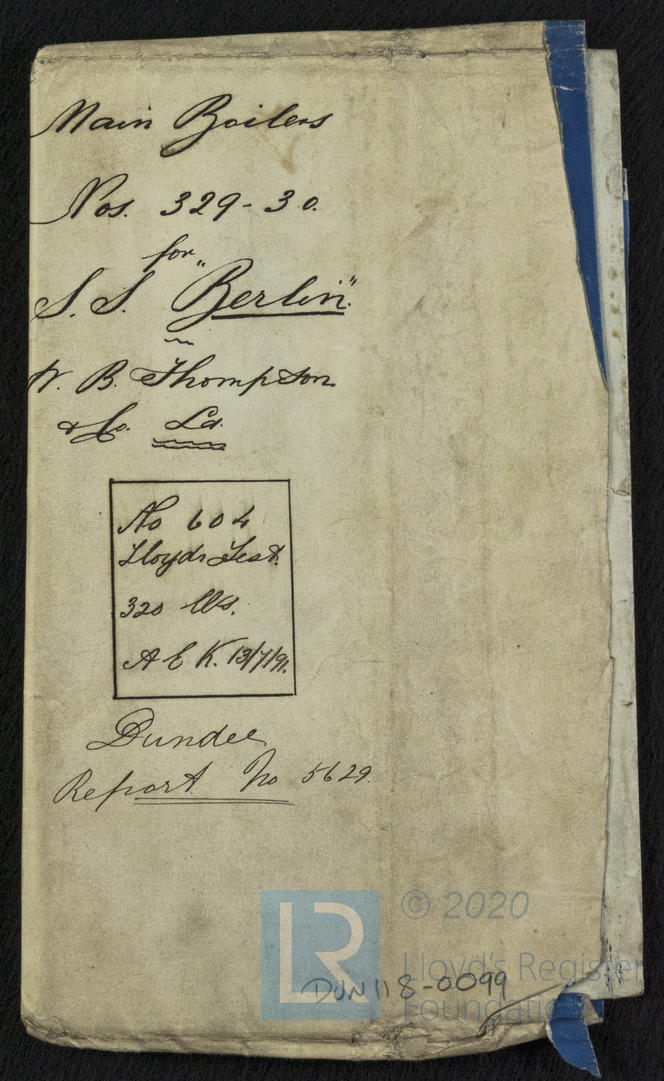 Main Boilers
Nos. 329-30.
for
S. S. "Berlin".
W. B. Thompson
& Co. Ld.
No 604
Lloyds Test.
320 lbs.
A E K. 13/7/91.
Dundee
Report No 5629.
LR
© 2020
Lloyd's Register
Foundation
DUN118-0099